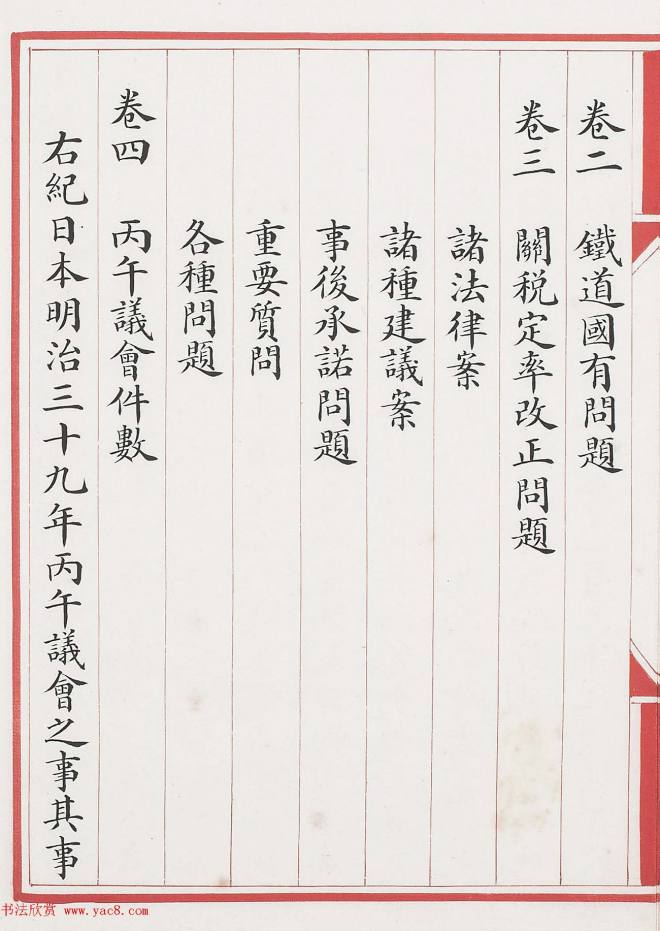 卷二 鐵道國有問題
卷三 關税定率改正問題
諸法律案
諸種建議案
事後承諾問題
重要質問
各種問題
卷四 丙午議會件數
右紀日本明治三十九年丙午議會之事其事
书法欣赏 www.yac8.com